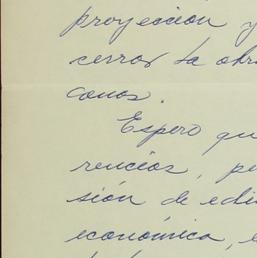 proyección y
cerrar la obr
canos.
Espero qu
rencias, pe
sión de edi
económica, e